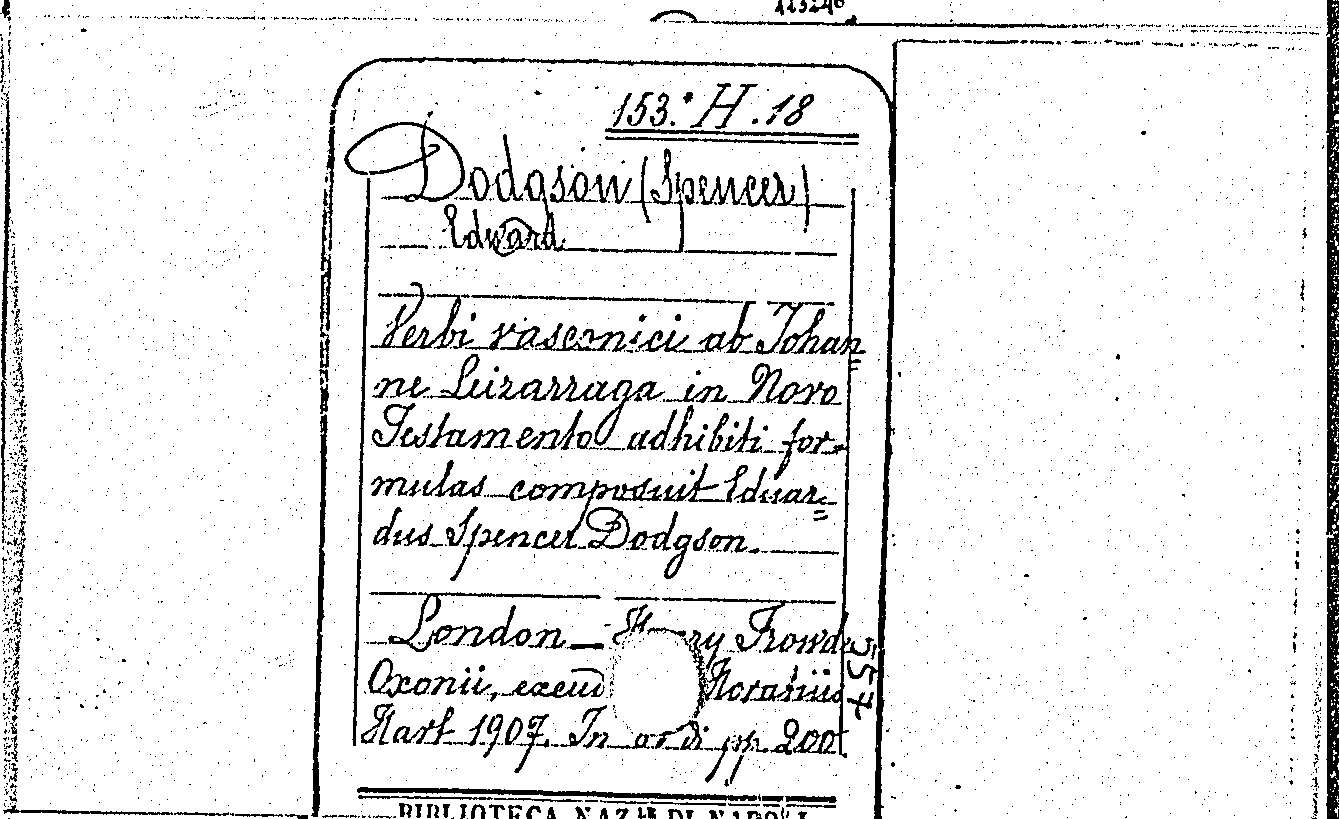 113240
153.* H. 18
Dodgson (Spencer)
Edward
Verbi vasconici ab Johan=
ne Leizarraga in Novo
Testamento adhibiti for-
mulas composuit Eduar=
dus Spencer Dodgson.
London - Henry Frowde
Oxonii, excud Horatius
Hart 1907. In or di pp. 200
557
BIBLIOTECA NAZ.LE DI NAPOLI